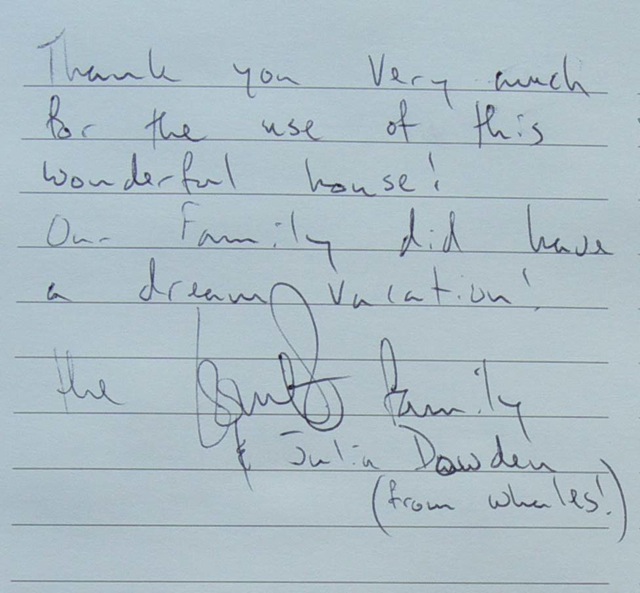 Thank you Very much
for the use of this
wonderful house!
Our Family did have
a dream vacation!
the family
& Julia Dowden
(from whales!)